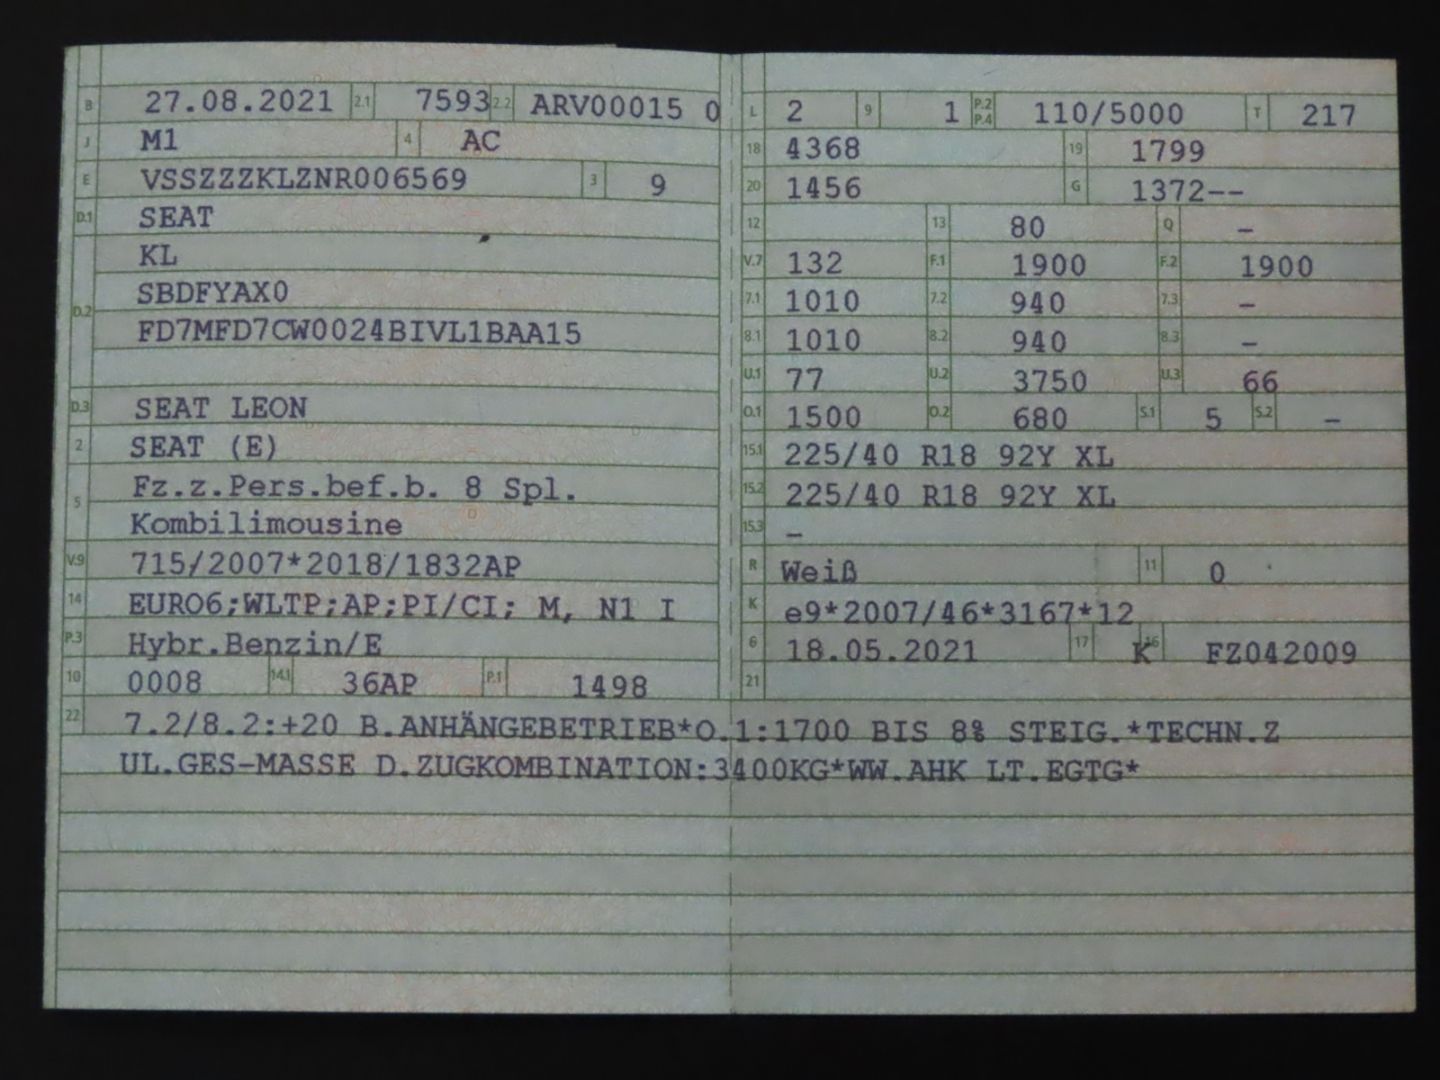 B 27.08.2021 2.1 7593 2.2 ARV00015 0
J M1 4 AC
E VSSZZZKLZNR006569 3 9
D.1 SEAT
D.2 KL
SBDFYAX0
FD7MFD7CW0024BIVL1BAA15
D.3 SEAT LEON
2 SEAT (E)
5 Fz.z.Pers.bef.b. 8 Spl.
Kombilimousine
V.9 715/2007*2018/1832AP
14 EURO6;WLTP;AP;PI/CI; M, N1 I
P.3 Hybr.Benzin/E
10 0008 14.1 36AP P.1 1498
L 2 9 1 P.2 P.4 110/5000 T 217
18 4368 19 1799
20 1456 G 1372--
12 13 80 Q -
V.7 132 F.1 1900 F.2 1900
7.1 1010 7.2 940 7.3 -
8.1 1010 8.2 940 8.3 -
U.1 77 U.2 3750 U.3 66
O.1 1500 O.2 680 S.1 5 S.2 -
15.1 225/40 R18 92Y XL
15.2 225/40 R18 92Y XL
15.3 -
R Weiß 11 0
K e9*2007/46*3167*12
6 18.05.2021 17 K 16 FZ042009
21
22 7.2/8.2:+20 B.ANHÄNGEBETRIEB*O.1:1700 BIS 8% STEIG.*TECHN.Z
UL.GES-MASSE D.ZUGKOMBINATION:3400KG*WW.AHK LT.EGTG*